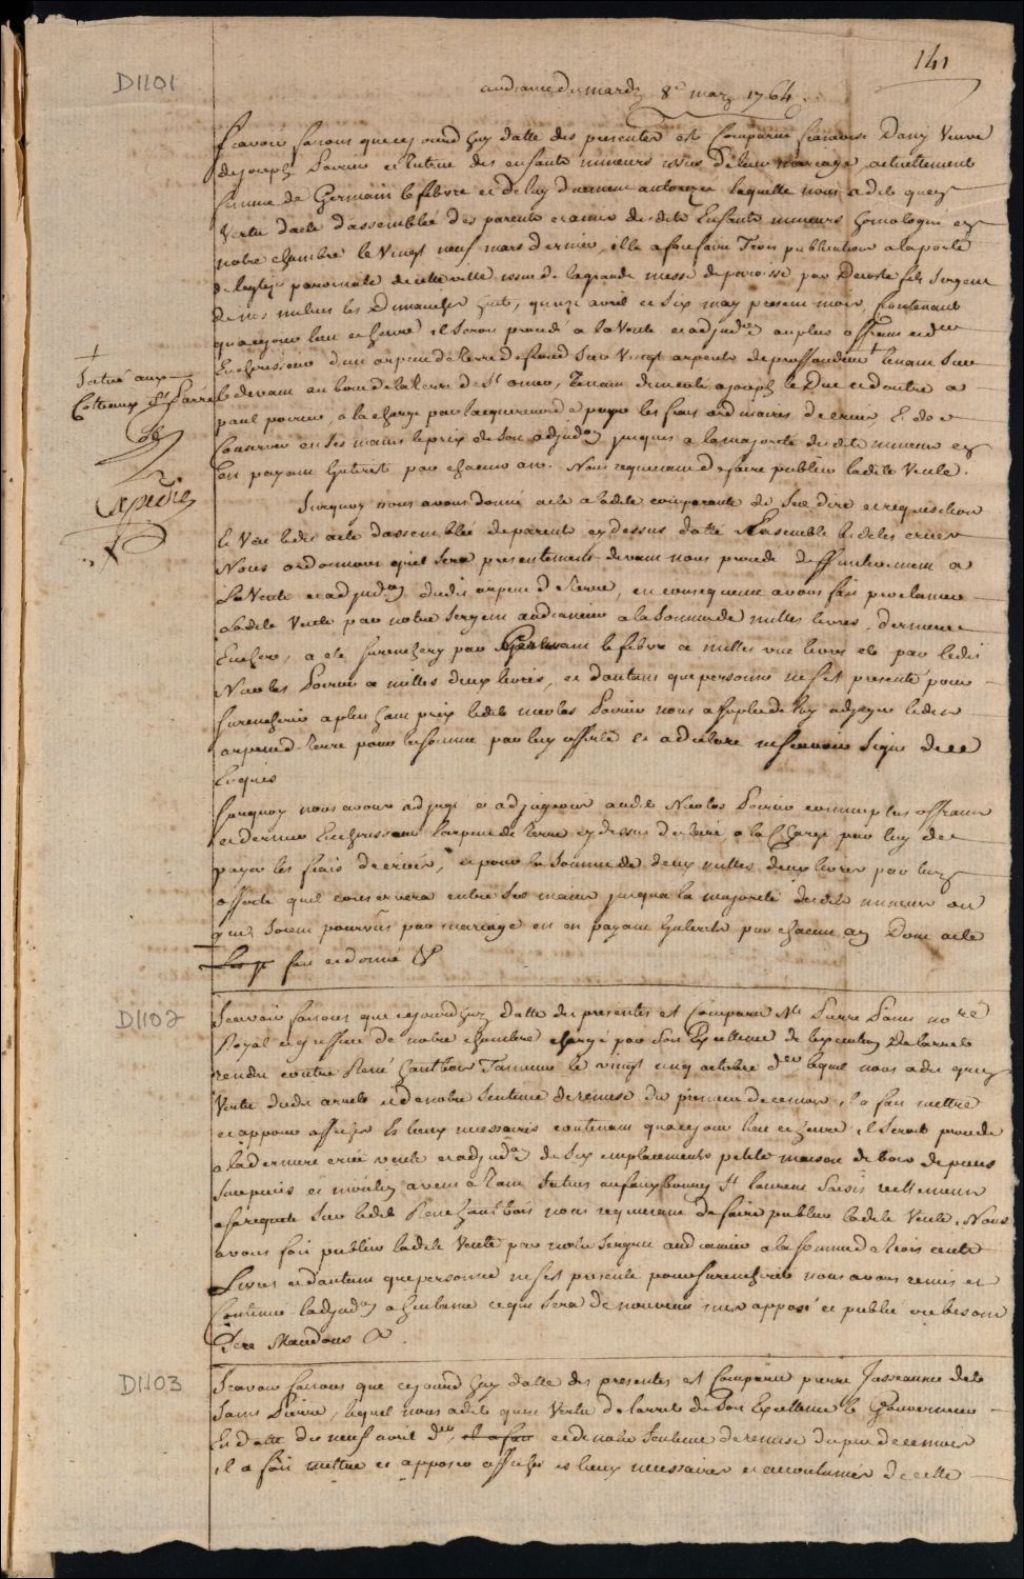 141
D1101
audiance du mardy 8e may 1764.
Scavoir faisons que cejourd'huy datte des presentes est Comparue francoise Dany Veuve
de joseph Poirier et Tutrice des enfants mineurs issus de leur mariage, actuellement
femme de Germain lefebvre et de luy duement autorizée laquelle nous a dit quen
Vertu dacte dassemblée des parents et amis desdits Enfants mineurs homologué en
notre chambre le Vingt neuf mars dernier, elle a fait faire Trois publications a la porte
de leglise paroissiale de cette ville issue de la grande messe de paroisse par Decoste fils Sergent
de nos milices les Dimanches huit, quinze avril et Six may present mois, Contenant
qua ce jour lieu et heure il Seroit procedé a la Vente et adjudon au plus offrant et der
Encherisseur dun arpent de terre de front Sur Vingt arpents de proffondeur † tenant Sur
† Situé aux
Cotteaux St Pierre
le devant au bout de la terre de St omer, Tenant d'un coté a joseph le Duc et d'autre a
paul poirier, a la charge par lacquereur de payer les frais ordinaires de criées, & de
Conserver en Ses mains le prix de Son adjudon jusques a la majorité desdits mineurs en
en payant Interest par chacun an. Nous requerant de faire publier ladite Vente.
Surquoy nous avons donné acte a ladite comparante de Son dire et requisition
le Veu ledit acte dassemblée de parents cy dessus datté Ensemble lesdites criées
Nous ordonnons quil Sera presentement devant nous procedé deffinitivement a
la Vente et adjudon dudit arpent de Terre, en consequence avons fait proclamer
ladite Vente par notre Sergent audiancier a la Somme de milles livres, derniere
Enchere, a eté Surenchery par Germain lefebvre a milles une livres et par ledit
Nicolas Poirier a milles deux livres, et dautant que personne ne Sest presenté pour
Surencherir a plus haut prix ledit nicolas Poirier nous a Supplié de luy adjuger ledit
arpent de Terre pour la Somme par luy offerte et a declaré ne Scavoir Signer de ce
Enquis
Surquoy nous avons adjugé et adjugeons audit Nicolas Poirier comme plus offrant
et dernier Encherisseur larpent de Terre cy dessus designé, a la Charge par luy de
payer les frais de criées, et pour la Somme de deux milles deux livres par luy
offerte quil conservera entre Ses mains jusqua la majorité desdits mineurs ou
quils Soient pourvûs par mariage en en payant Interests par chacun an Dont acte
fait et donné &
D1102
Scavoir faisons que cejourd'huy datte des presentes est Comparu Me Pierre Panet nore
Royal et greffier de notre chambre chargé par Son Excellence de lexecution de larrets
rendu contre René hautbois Tanneur le vingt cinq octobre der lequel nous a dit quen
Vertu dudit arrets et de notre Sentence de remise du premier de ce mois, il a fait mettre
et apposer affiches es lieux necessaires contenant qua ce jour lieu et heure il Seroit procedé
a la derniere criée vente et adjudon de Six emplacements petite maison de bois de pieces
Sur pieces et moulin a vent a Tan Situés au fauxbourg St laurens Saisis réellement
a Sa requete Sur ledit René hautbois nous requerant de faire publier ladite Vente. Nous
avons fait publier ladite Vente par notre Sergent audiancier a la Somme de Trois cents
Livres et dautant que personne ne Sest presenté pour Surencherir nous avons remis et
Continué ladjudon a huitaine ce qui Sera de nouveau mis apposé et publié ou besoin
Sera Mandons &.
D1103
Scavoir faisons que cejourd'huy datte des presentes est Comparu pierre Jasseaume dit
Saint Pierre, lequel nous a dit quen Vertu de larrets de Son Excellence le Gouverneur
En datte du neuf avril der, et de notre Sentence de remise du pr de ce mois
il a fait mettre et apposer affiches es lieux necessaires et accoutumés de cette